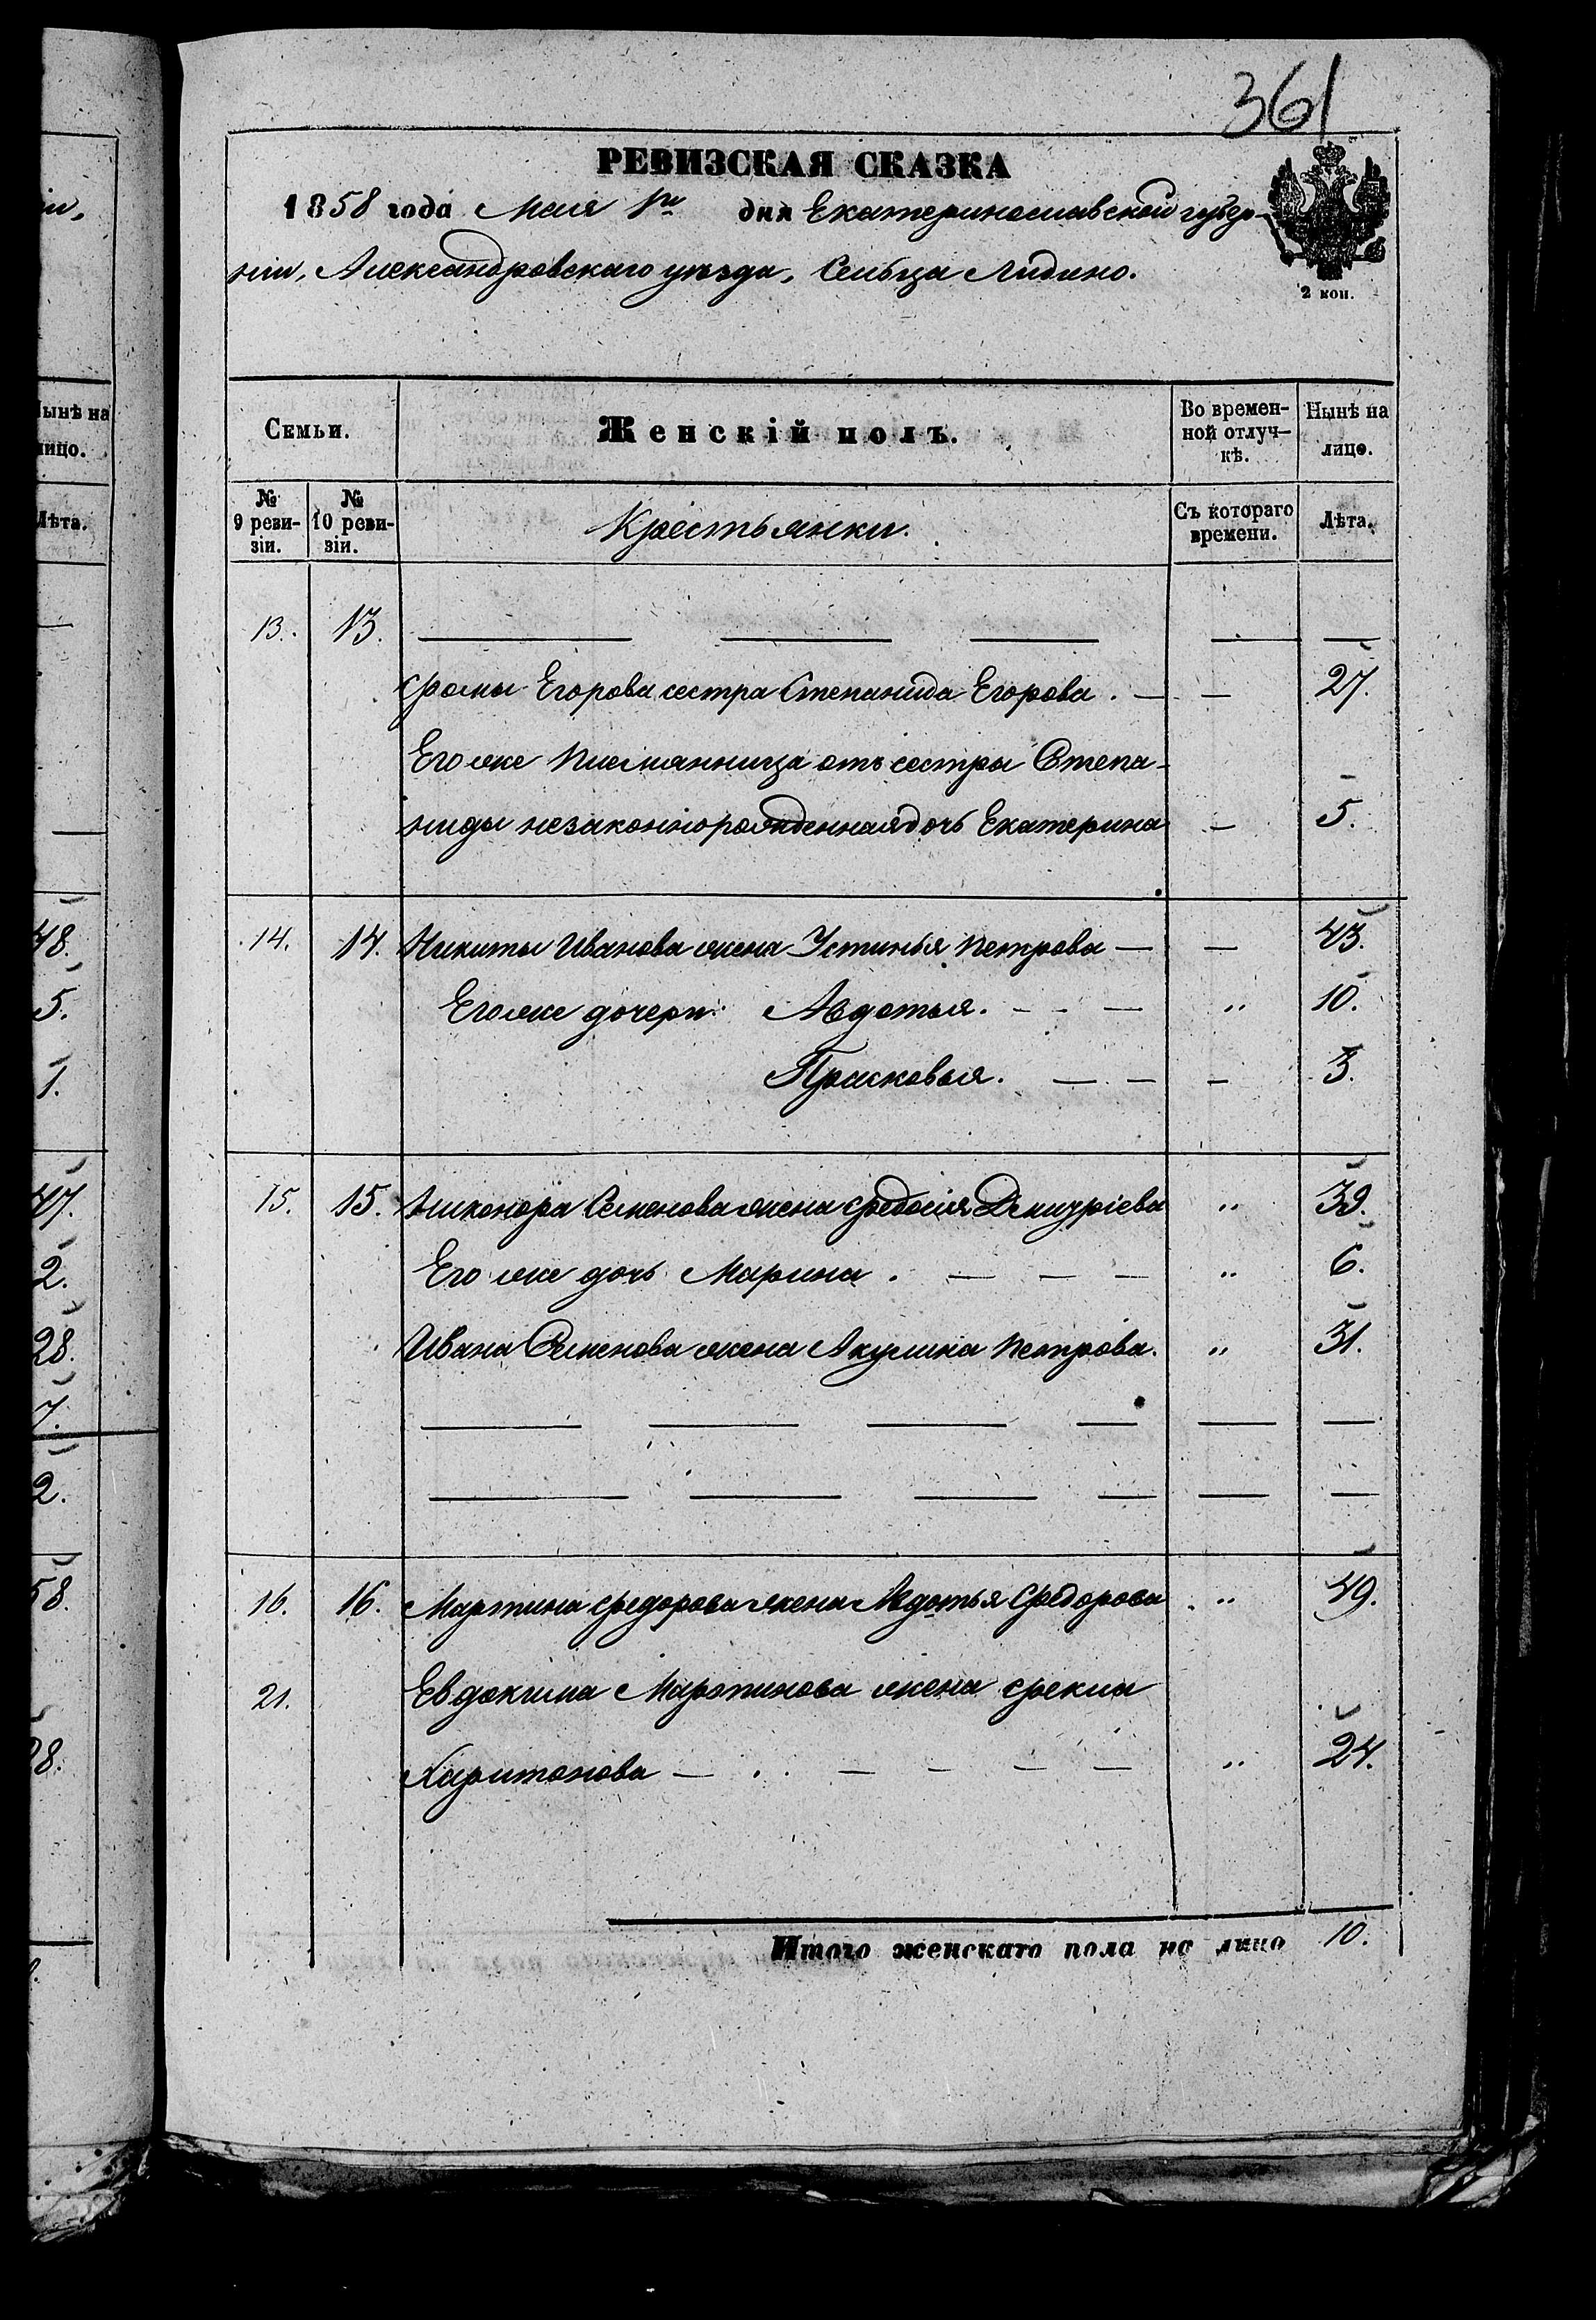 361
РЕВИЗСКАЯ СКАЗКА
1858 года Мая 1го дня Екатеринославской губер-
ніи, Александровскаго уѣзда, Сельца Лидино.
2 коп.
Семьи. Женскій полъ. Во времен-ной отлуч-кѣ. Нынѣ на лицо.
№ 9 реви-зіи. № 10 реви-зіи. Крестьянки. Съ котораго времени. Лѣта.
13. 13. — — — — —
Фомы Егорова сестра Степанида Егорова. — — 27.
Его же племянница отъ сестры Степа-
ниды незаконнорожденная дочь Екатерина — 5.
14. 14. Никиты Иванова жена Устинья Петрова — — 43.
Его же дочери: Авдотья. - - — " 10.
Прасковья. — — — 3.
15. 15. Никонора Семенова жена Федосія Дмитріева " 39.
Его же дочь Марина. — — — " 6.
Ивана Семенова жена Акулина Петрова. " 31.
— — — — — —
— — — — — —
16. 16. Мартина Федорова жена Авдотья Федорова " 49.
21. Евдокима Мартинова жена Фекла
Харитонова — . . — — — — " 24.
Итого женскаго пола на лицо 10.
ніи,
Нынѣ на
лицо.
Лѣта.
48.
5.
1.
47.
2.
28.
7.
2.
58.
28.